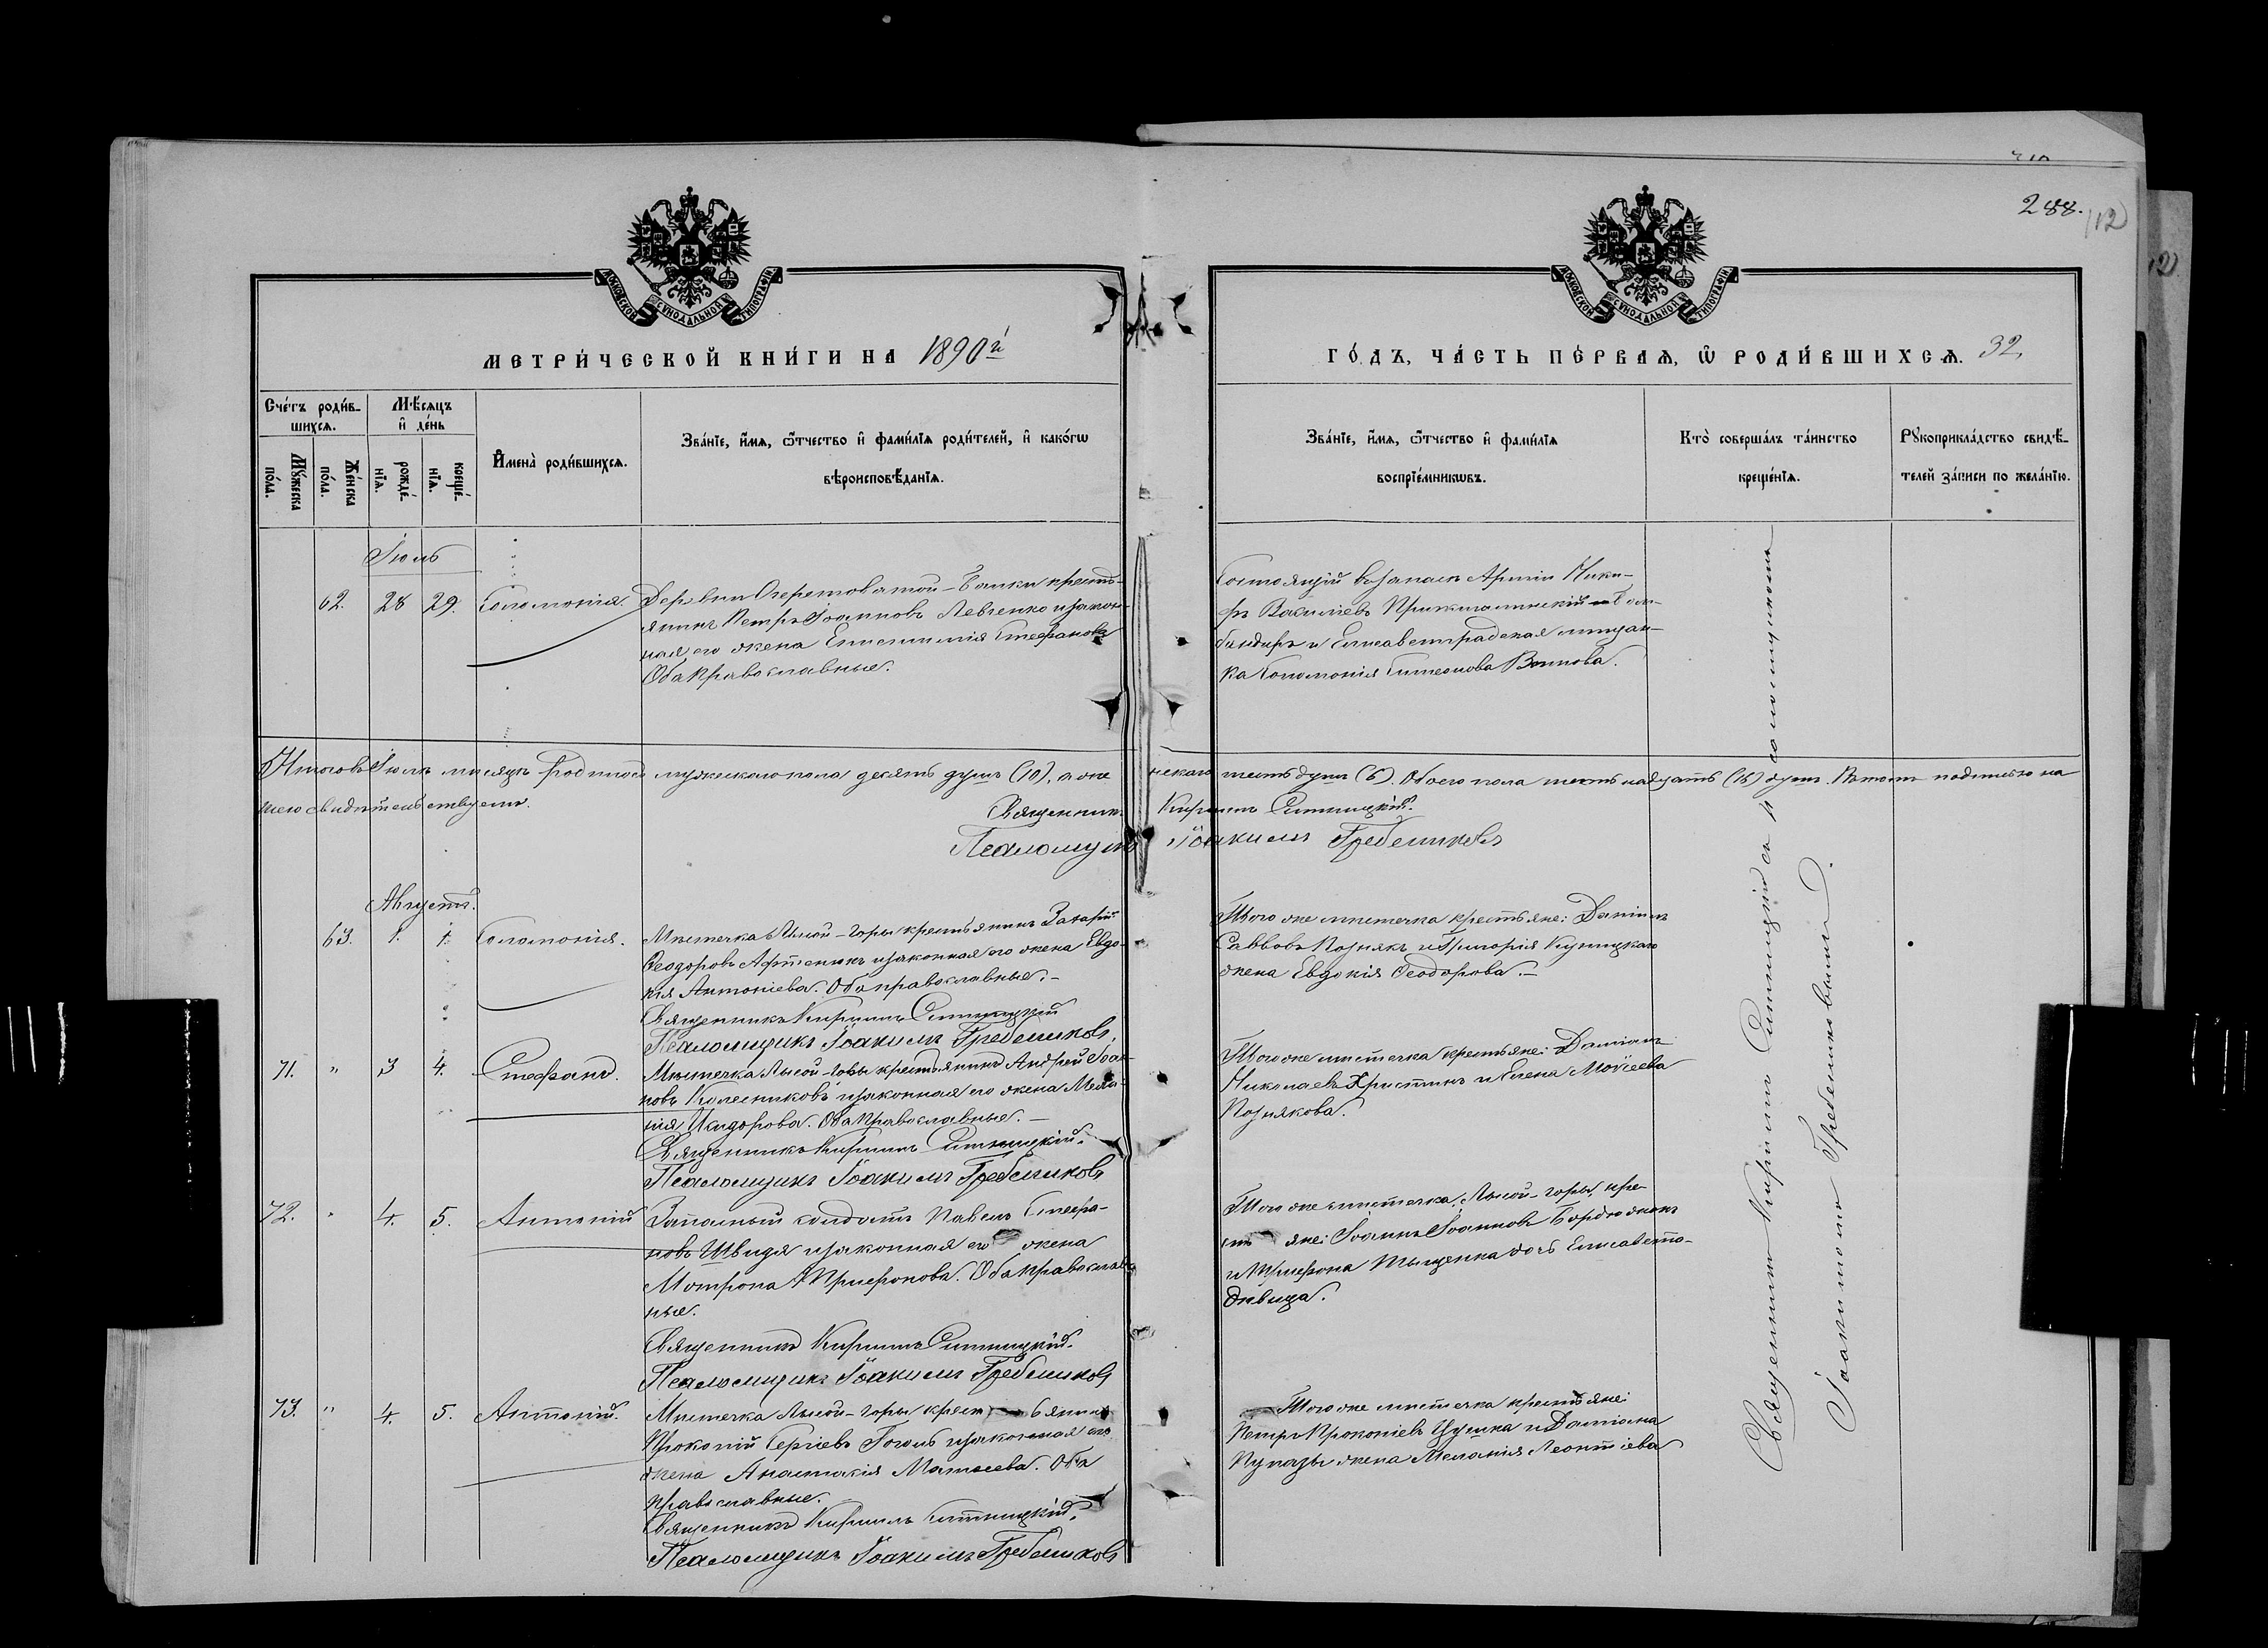 288.
112
МОСКОВСКОЙ СѴНОДАЛЬНОЙ ТИПОГРАФІИ
МОСКОВСКОЙ СѴНОДАЛЬНОЙ ТИПОГРАФІИ
МЕТРИ́ЧЕСКОЙ КНИ́ГИ НА 1890й
ГО́ДЪ, ЧА́СТЬ ПЕ́РВАѦ, Ѿ РОДИ́ВШИХСѦ. 32.
Сче́тъ роди́в-
шихсѧ.
Мꙋ́жеска по́ла.
Же́нска по́ла.
Мѣ́сѧцъ
и҆ де́нь
рожде́-
нїѧ.
креще́-
нїѧ.
И҆мена̀ роди́вшихсѧ.
Зва́нїе, и҆́мѧ, ѻ҆́тчество и҆ фами́лїѧ роди́телей, и҆ како́гѡ
вѣроисповѣ́данїѧ.
Зва́нїе, и҆́мѧ, ѻ҆́тчество и҆ фами́лїѧ
воспрїе́мникѡвъ.
Кто̀ соверша́лъ та́инство
креще́нїѧ.
Рꙋкоприкла́дство свидѣ́-
телей за́писи по жела́нїю.
Іюль
62. 28 29. Соломонія.
Деревни Очеретоватой-Балки кресть-
янинъ Петръ Іоанновъ Левченко и закон-
ная его жена Стефанова
Оба православные.
Состоящій въ запасѣ Арміи Ники-
фъ Василіевъ бом-
бандиръ и Елисаветградская мѣщан-
ка Соломонія Симеонова Воинова.
Итого въ Іюлѣ мѣсяцѣ родилось мужескаго пола десять душъ (10), а же-
нскаго шесть душъ (6). Обоего пола шестьнадцать (16) душъ. Въ томъ подписью на-
шею свидѣтельствуемъ.
Священникъ Кириллъ Ситницкій.
Псаломщикъ Іоакимъ Гребенниковъ
Августъ.
63. 1. 1. Соломонія.
Мѣстечка Лысой-горы крестьянинъ Захарій
Ѳеодоровъ и законная его жена Евдо-
кія Антоніева. Оба православные.-
Священникъ Кириллъ Ситницкій
Псаломщикъ Іоакимъ Гребенниковъ.
Того же мѣстечка крестьяне: Даніилъ
Саввовъ Познякъ и Григорія Куницкаго
жена Евдокія Ѳеодорова.-
71. " 3 4. Стефанъ.
Мѣстечка Лысой-горы крестьянинъ Андрей Іоан-
новъ Колесниковъ и законная его жена Мела-
нія Исидорова. Оба православные.-
Священникъ Кириллъ Ситницкій.
Псаломщикъ Іоакимъ Гребенниковъ
Того же мѣстечка крестьяне: Даміанъ
Николаевъ и Елена Моѵсеева
Познякова.
72. " 4. 5. Антоній
Запасный солдатъ Павелъ Стефа-
новъ Швидя и законная его жена
Мотрона Трифонова. Оба православ-
ные.
Священникъ Кириллъ Ситницкій.
Псаломщикъ Іоакимъ Гребенниковъ
Того же мѣстечка, Лысой-горы, кре-
стьяне: Іоаннъ Іоанновъ
и Трифона Тыщенка дочь Елисавета-
дѣвица.
73. " 4. 5. Антоній.
Мѣстечка Лысой-горы крестьянинъ
Прокопій Сергіевъ Гоголь и законная его
жена Анастасія Матѳеева. Оба
православные.
Священникъ Кириллъ Ситницкій.
Псаломщикъ Іоакимъ Гребенниковъ
Того же мѣстечка крестьяне:
Петръ Прокопіевъ и Даміана
жена Меланія Леонтіева
Священникъ Кириллъ Ситницкій съ псаломщикомъ
Іоакимомъ Гребенниковымъ.